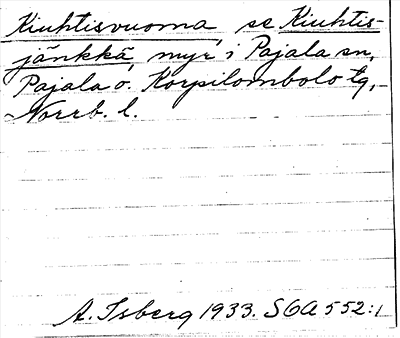 Kiuhtisvuoma, se Kiuhtis-
jänkkä, myr i Pajala sn,
Pajala o. Korpilombolo tg,
Norrb. l.
A. Isberg 1933. SOA 552:1